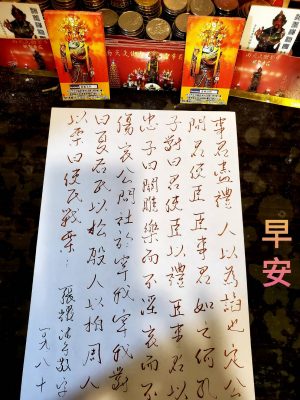 事君盡禮人以為諂也定公
問君使臣臣事君如之何孔
子對曰君使臣以禮臣事君以
忠子曰關雎樂而不淫哀而不
傷哀公問社於宰我宰我對
曰夏后氏以松殷人以柏周人
以栗曰使民戰栗：
一九八十
早安